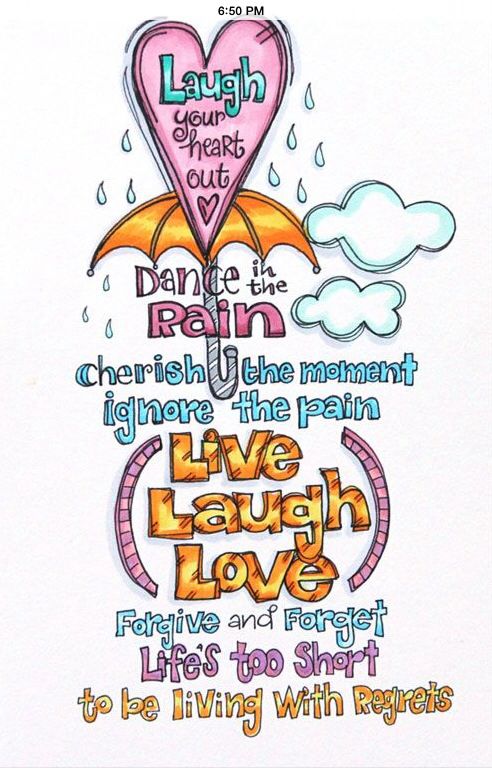 6:50 PM
Laugh
your
heart
out
Dance in the
Rain
cherish the moment
ignore the pain
Live
Laugh
Love
Forgive and Forget
Life's too Short
to be living with Regrets